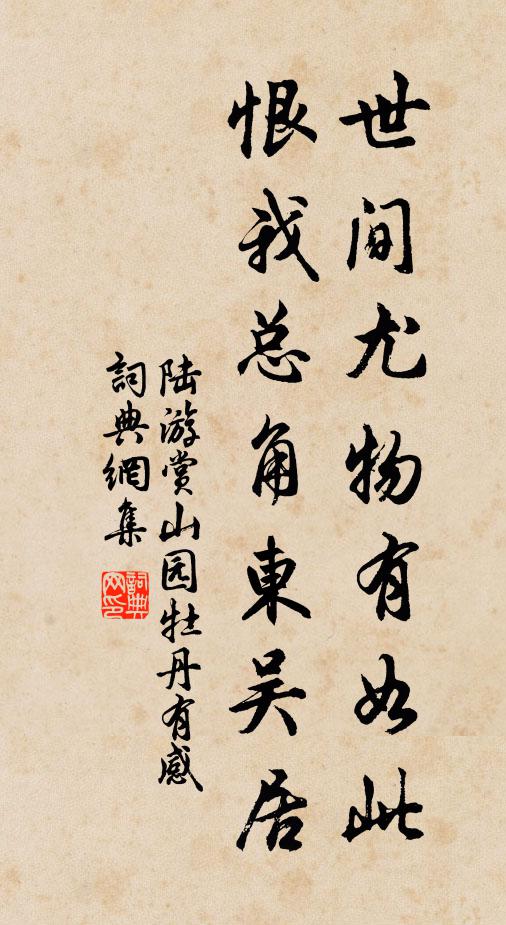 世间尤物有如此
恨我总角東吴居
陆游赏山园牡丹有感
詞典網集
詞典
网印